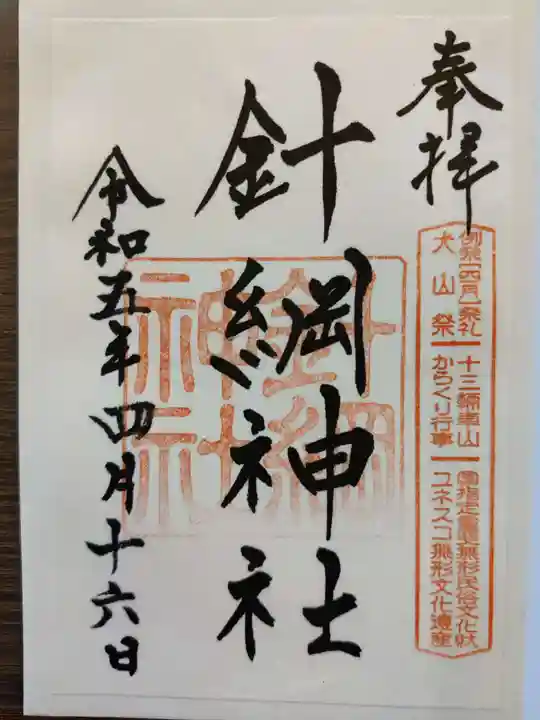 奉拝
例祭[四月]祭礼
犬山祭
十三輌車山
からくり行事
国指定重要無形民俗文化財
ユネスコ無形文化遺産
針綱神社
針綱
神社
令和五年四月十六日